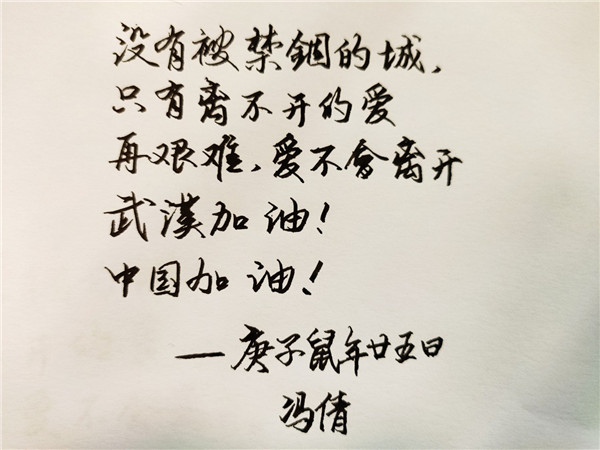 没有被禁锢的城,
只有离不开的爱
再艰难,爱不會离开
武漢加油!
中国加油!
—庚子鼠年廿五日
冯倩